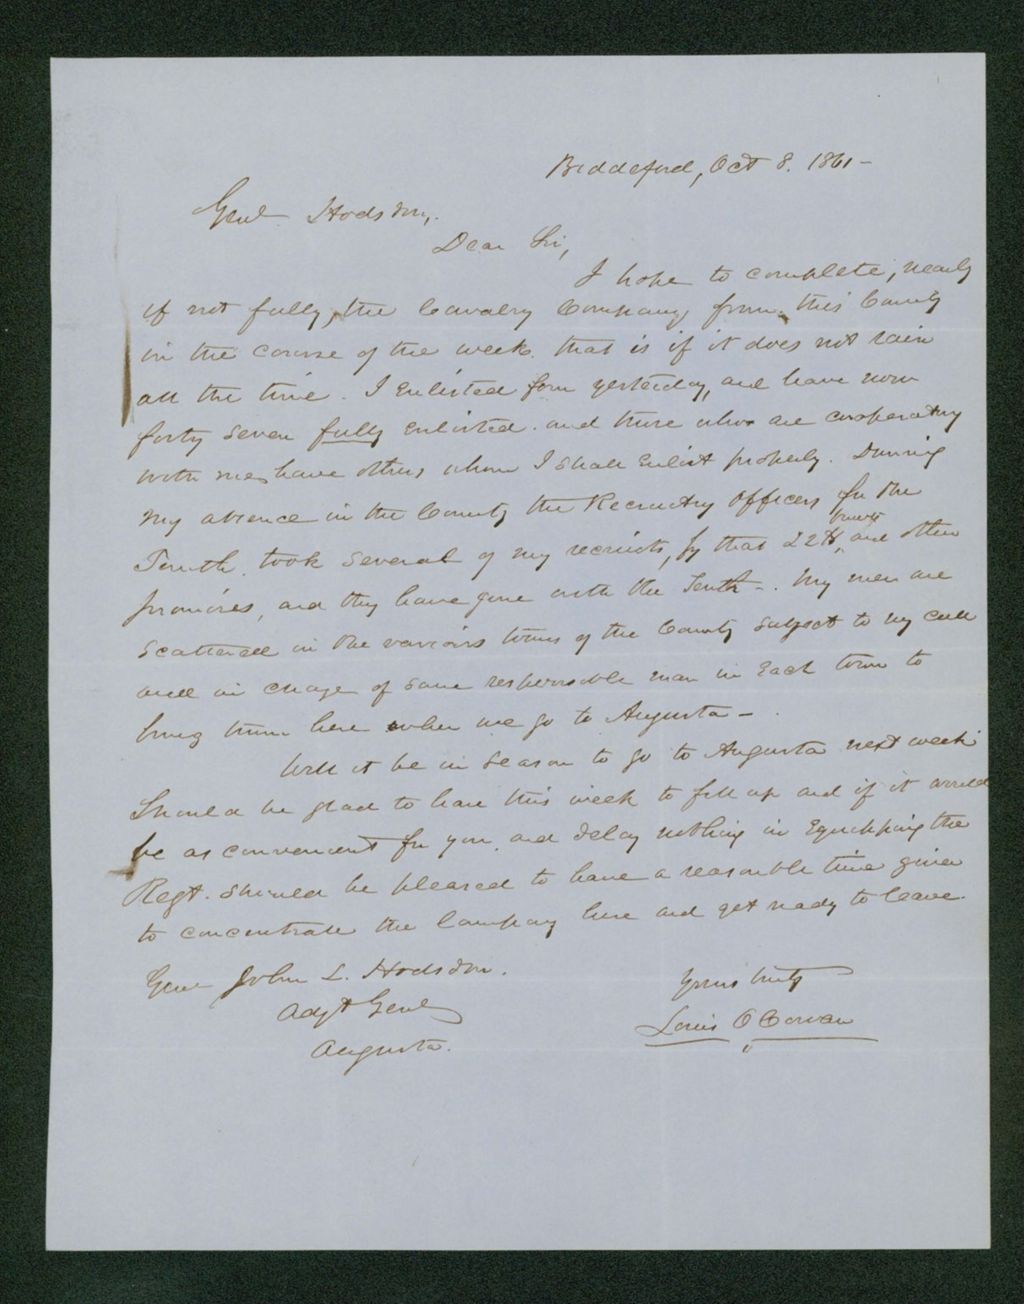 Biddeford, Oct 8. 1861-
Genl Hodsdon,
Dear Sir,
I hope to complete, nearly
if not fully, the Cavalry Company, from this County
in the course of the week. that is if it does not rain
all the time. I enlisted four yesterday, and have now
forty seven fully enlisted. and those who are cooperating
with me, have others whom I shall enlist properly. During
my absence in the County the Recruiting Officers for the
Tenth took several of my recruits, by that 22$ bounty and other
promises, and they have gone with the Tenth-. My men are
scattered in the various towns of the County subject to my call
and in charge of some responsible man in each town to
bring them here when we go to Augusta-
Will it be in season to go to Augusta next week
Should be glad to have this week to fill up and if it would
be as convenient for you, and delay nothing in equipping the
Regt. should be pleased to have a reasonable time given
to concentrate the Company here and get ready to leave
Genl John L. Hodsdon.
Adjt Genl
Augusta.
Yours truly
Louis O Cowan